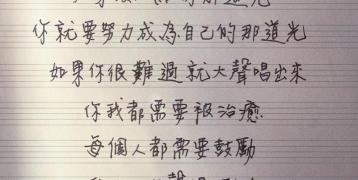 你就要努力成為自己的那道光
如果你很難過就大聲唱出來
你我都需要被治癒
每個人都需要鼓勵